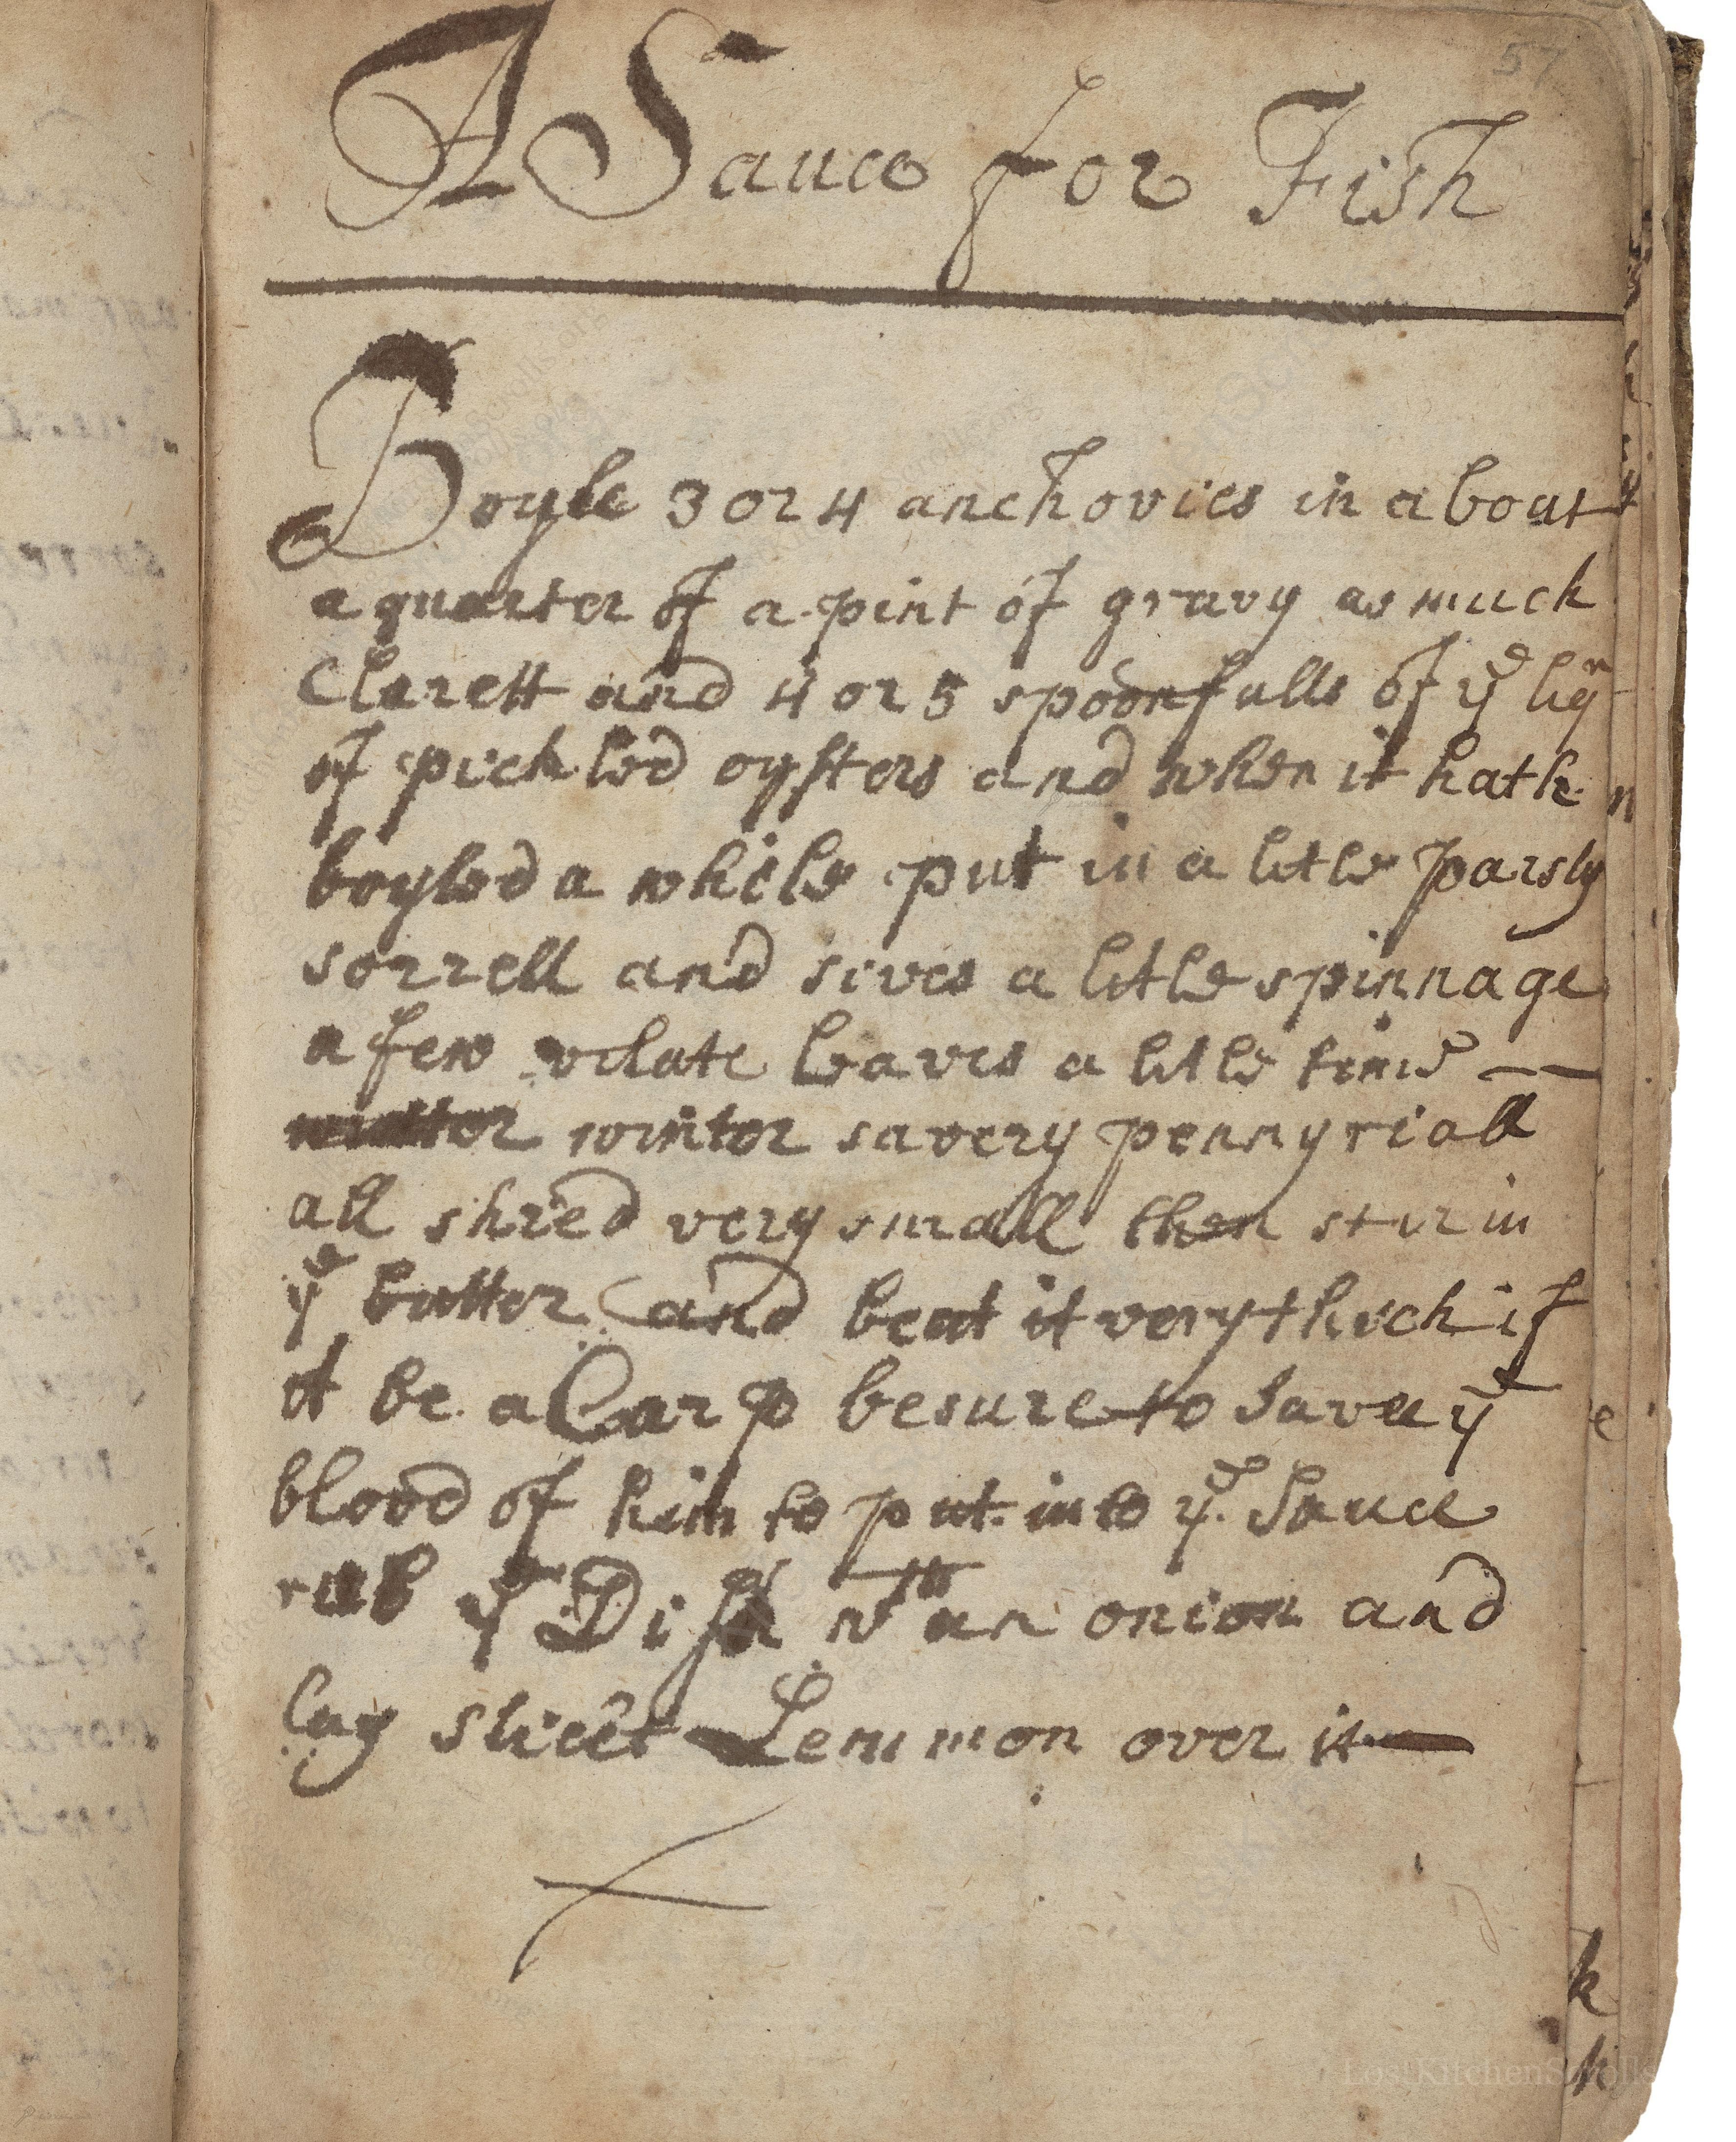 57
A Sauce for Fish
Boyle 3 or 4 anchovies in about
a quarter of a pint of gravy as much
Clarett and 4 or 5 spoonfulls of yᵉ liqʳ
of pickled oysters and when it hath
boyled a while put in a litle parsly
sorrell and sives a litle spinnage
a few vilate leaves a litle time —
winter savery pennyriall
all shred very small then stir in
yᵉ butter and beat it very thick if
it be a Carp be sure to save yᵉ
blood of him to put into yᵉ Sauce
rub yᵉ Dish wᵗʰ an onion and
lay sliced Lemmon over it —
LostKitchenScrolls